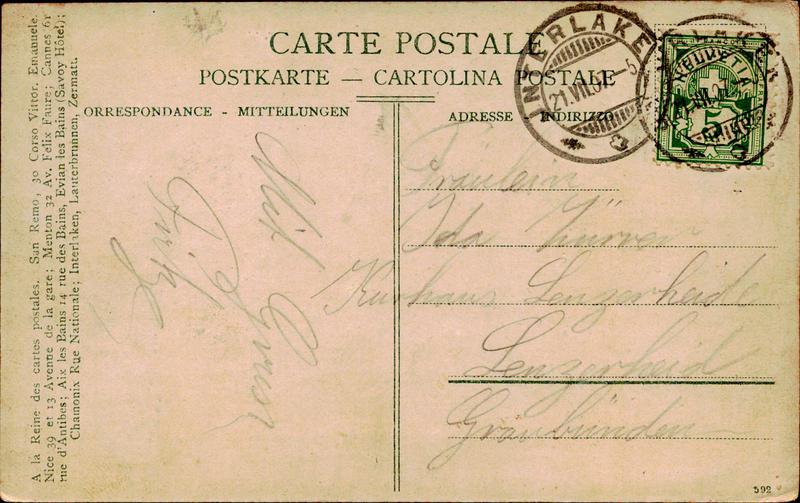 CARTE POSTALE
POSTKARTE — CARTOLINA POSTALE
ORRESPONDANCE - MITTEILUNGEN
ADRESSE - INDIRIZZO
INTERLAKEN
21.VII.07. - 5
HELVETIA
5
Fräulein
Ida
Kurhaus Lenzerheide
Lenzerheid
Graubünden
Mit Gruss
Fritz
A la Reine des cartes postales. San Remo, 30 Corso Vittor. Emanuele.
Nice 39 et 13 Avenue de la gare; Menton 32 Av. Félix Faure; Cannes 61
rue d'Antibes; Aix les Bains 14 rue des Bains, Evian les Bains (Savoy Hôtel);
Chamonix Rue Nationale; Interlaken, Lauterbrunnen, Zermatt.
592